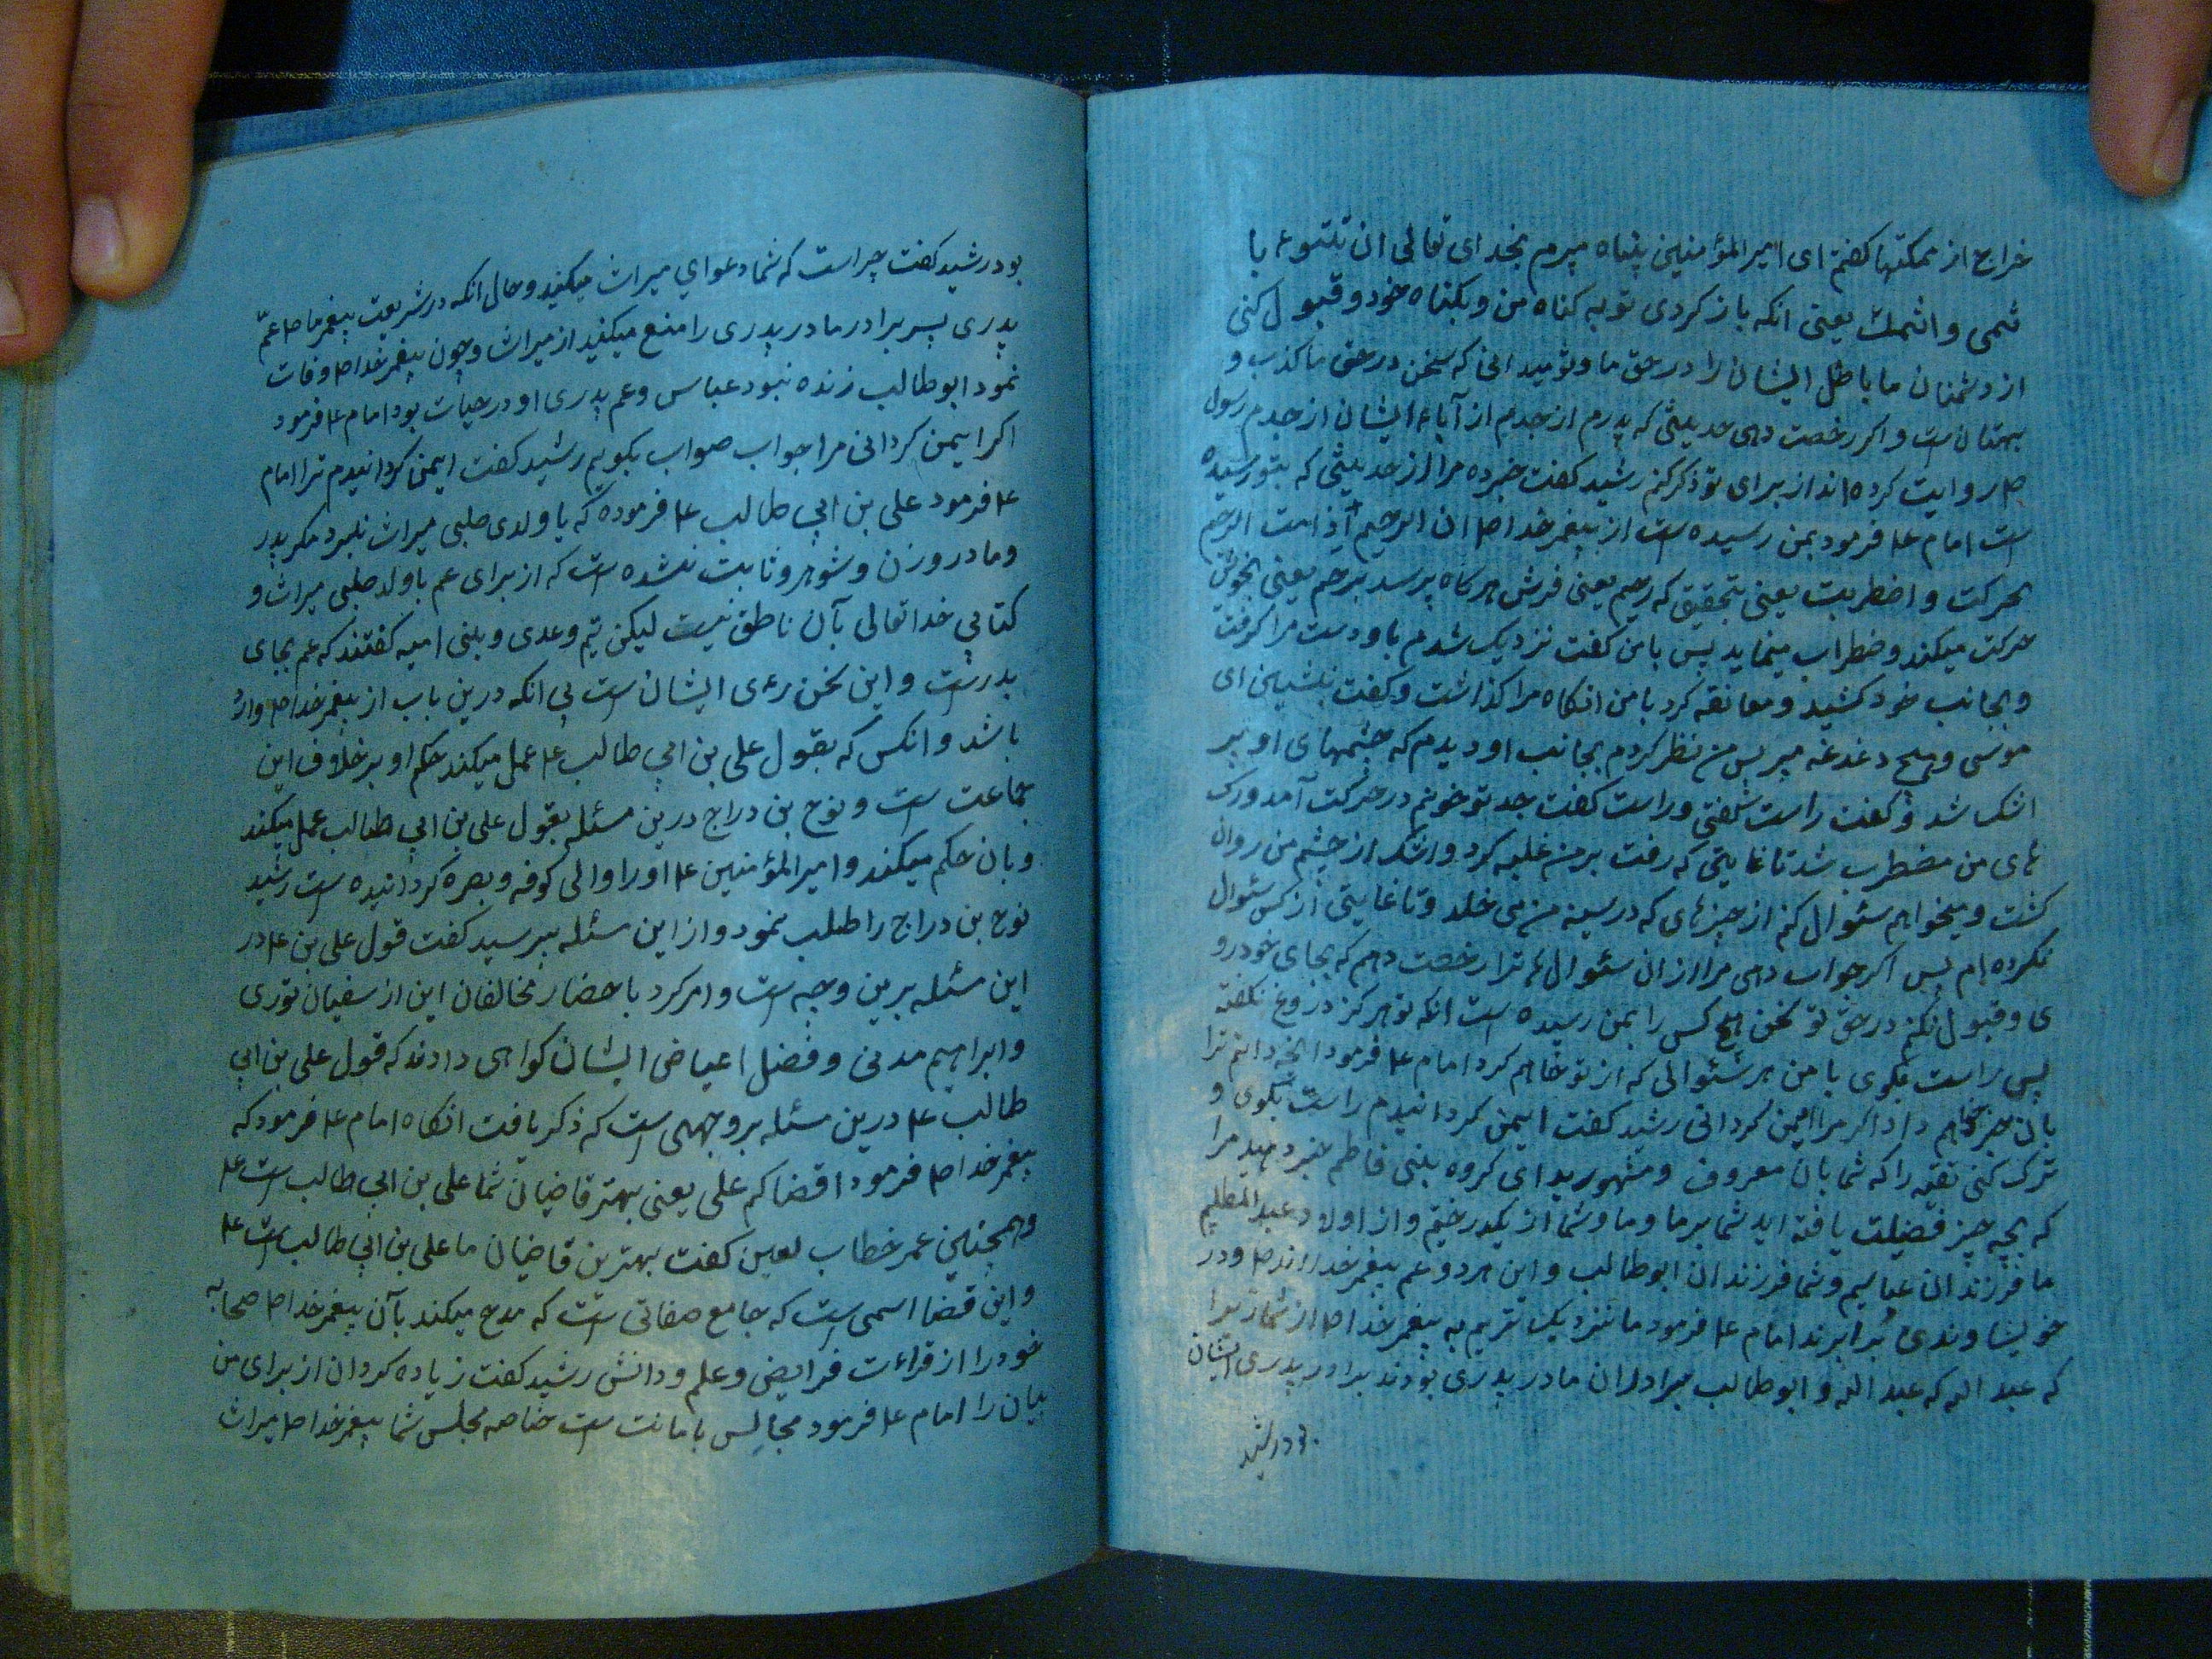 خراج از مملکتها کفتم ای امیرالمؤمنین پناه میبرم بخدای تعالی ان تبوء با
ثمی و اثمک یعنی انکه باز کردی تو به کناه من و بکناه خود و قبول کنی
از دشمنان ما باطل ایشان را در حق ما و تو میدانی که سخن در حق ما کذب و
بهتان است و اکر رخصت دهی حدیثی که پدرم از جدم از آباء ایشان از جدم رسول
ص روایت کرده اند از برای تو ذکر کنم رشید کفت خبر ده مرا از حدیثی که بتو رسیده
است امام ع فرمود بمن رسیده است از پیغمر خدا ص ان الرحیم اذا مست الرحیم
تحرکت و اضطربت یعنی بتحقیق که رحیم یعنی هرکاه برسد برحم یعنی بخویش
حرکت میکند و ضطراب مینماید پس با من کفت نزدیک شدم باو دست مرا کرفت
و بجانب خود کشید و معانقه کرد با من انکاه مرا کذاشت و کفت بنشین ای
موسی و هیچ دغدغه مبر پس من نظر کردم بجانب او دیدم که چشمهای او پر
اشک شد و کفت راست کفتی و راست کفت جد تو خونم در حرکت آمد و رک
های من مضطرب شد تا غایتی که رفت بر من غلبه کرد و اشک از چشم من روان
کشت و میخواهم سئوال کنم از چیزهای که در سینه من می خلد و تا غایتی از کس سئوال
نکرده ام پس اکر جواب دهی مرا از ان سئوال ها ترا رخصت دهم که بجای خود رو
ی و قبول نکنم در حق تو سخن هیچ کس را بمن رسیده است انکه تو هرکز دروغ نکفته
پس راست بکوی با من هر سئوالی که از تو خاهم کرد امام ع فرمود انچه دانم ترا
بان خبر خواهم داد اکر مرا ایمن کردانی رشید کفت ایمن کردانیدم راست بکوی و
ترک کنی تقیه را که شما بان معروف و مشهورید ای کروه بنی فاطمه خبر دهید مرا
که بچه چیز فضیلت یافته اید شما بر ما و ما و شما از یکدرختیم و از اولاد عبدالمطلبیم
ما فرزندان عباسیم و شما فرزندان ابوطالب و این هر دو عم پیغمر خدا اند ص و در
خویشاوندی برابرند امام ع فرمود ما نزدیک تریم به پیغمر خدا ص از شما زیرا
که عبد اله که عبد اله و ابوطالب برادران مادر پدری بودند برادر پدری ایشان
بود رشید
بود رشید کفت چراست که شما دعوای میراث میکنید و حال انکه در شریعت پیغمر ما ص عم
پدری پسر برادر مادر پدری را منع میکنید از میراث و چون پیغمر خدا ص وفات
نمود ابوطالب زنده نبود عباس و عم پدری او در حیات بود امام ع فرمود
اکر ایمن کردانی مرا جواب صواب بکویم رشید کفت ایمن کردانیدم ترا امام
ع فرمود علی بن ابی طالب ع فرموده که با ولدی صلبی میراث نبرد مکر پدر
و مادر و زن و شوهر و ثابت نشده است که از برای عم با ولد صلبی میراث و
کتابی خدا تعالی بآن ناطق نیست لیکن تیم و عدی و بنی امیه کفتند که عم بجای
پدرست و این سخن رءی ایشان است بی انکه درین باب از پیغمر خدا ص وارد
باشد و انکس که بقول علی بن ابی طالب ع عمل میکند حکم او بر خلاف این
جماعت است و نوح بن دراج درین مسئله بقول علی بن ابی طالب عمل میکند
و بان حکم میکند و امیرالمؤمنین ع او را والی کوفه و بصره کردانیده است رشید
نوح بن دراج را طلب نمود و از این مسئله پرسید کفت قول علی بن ع در
این مسئله برین وجه است و امر کرد باحضار مخالفان این از سفیان ثوری
و ابراهیم مدنی و فضل اعیاض ایشان کواهی دادند که قول علی بن ابی
طالب ع درین مسئله بر وجهی است که ذکر یافت انکاه امام ع فرمود که
پیغمر خدا ص فرمود اقضاکم علی یعنی بهتر قاضیان شما علی بن ابی طالب است ع
وهمچنین عمر خطاب لعین کفت بهترین قاضیان ما علی بن ابی طالب است ع
و این قضا اسمی است که جامع صفاتی است که مدح میکند بآن پیغمر خدا ص صحابه
خود را از قراءت فرایض و علم و دانش رشید کفت زیاده کردان از برای من
بیان را امام ع فرمود مجالس با مانت است خاصه مجلس شما پیغمر خدا ص میراث